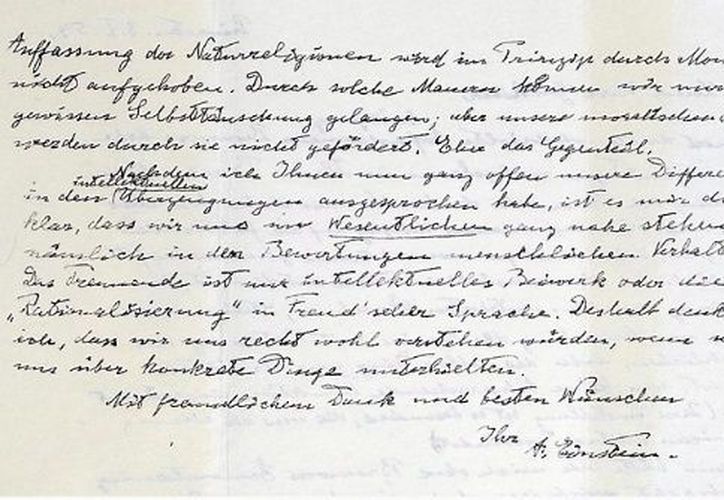 Auffassung der Naturreligionen wird im Prinzip durch Mon
nicht aufgehoben. Durch solche Mauern können wir nur
gewissen Selbsttäuschung gelangen; aber unsere moralischen
werden durch sie nicht gefördert. Eher das Gegenteil.
Nachdem ich Ihnen nun ganz offen unsere Differe
intellektuellen
in den Überzeugungen ausgesprochen habe, ist es mir d
klar, dass wir uns im Wesentlichen ganz nahe stehen
nämlich in den Bewertungen menschlichen Verhalt
Das Trennende ist nur intellektuelles Beiwerk oder die
„Rationalisierung" in Freud'scher Sprache. Deshalb denk
ich, dass wir uns recht wohl verstehen würden, wenn w
uns über konkrete Dinge unterhielten.
Mit freundlichem Dank und besten Wünschen
Ihr
A. Einstein.